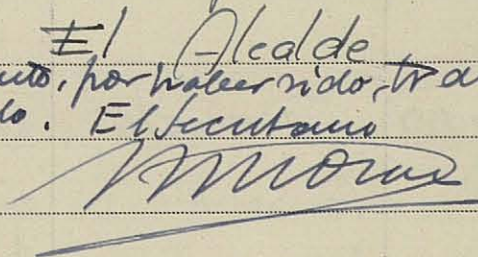 El Alcalde
por haber sido, tra
do. El Secretario